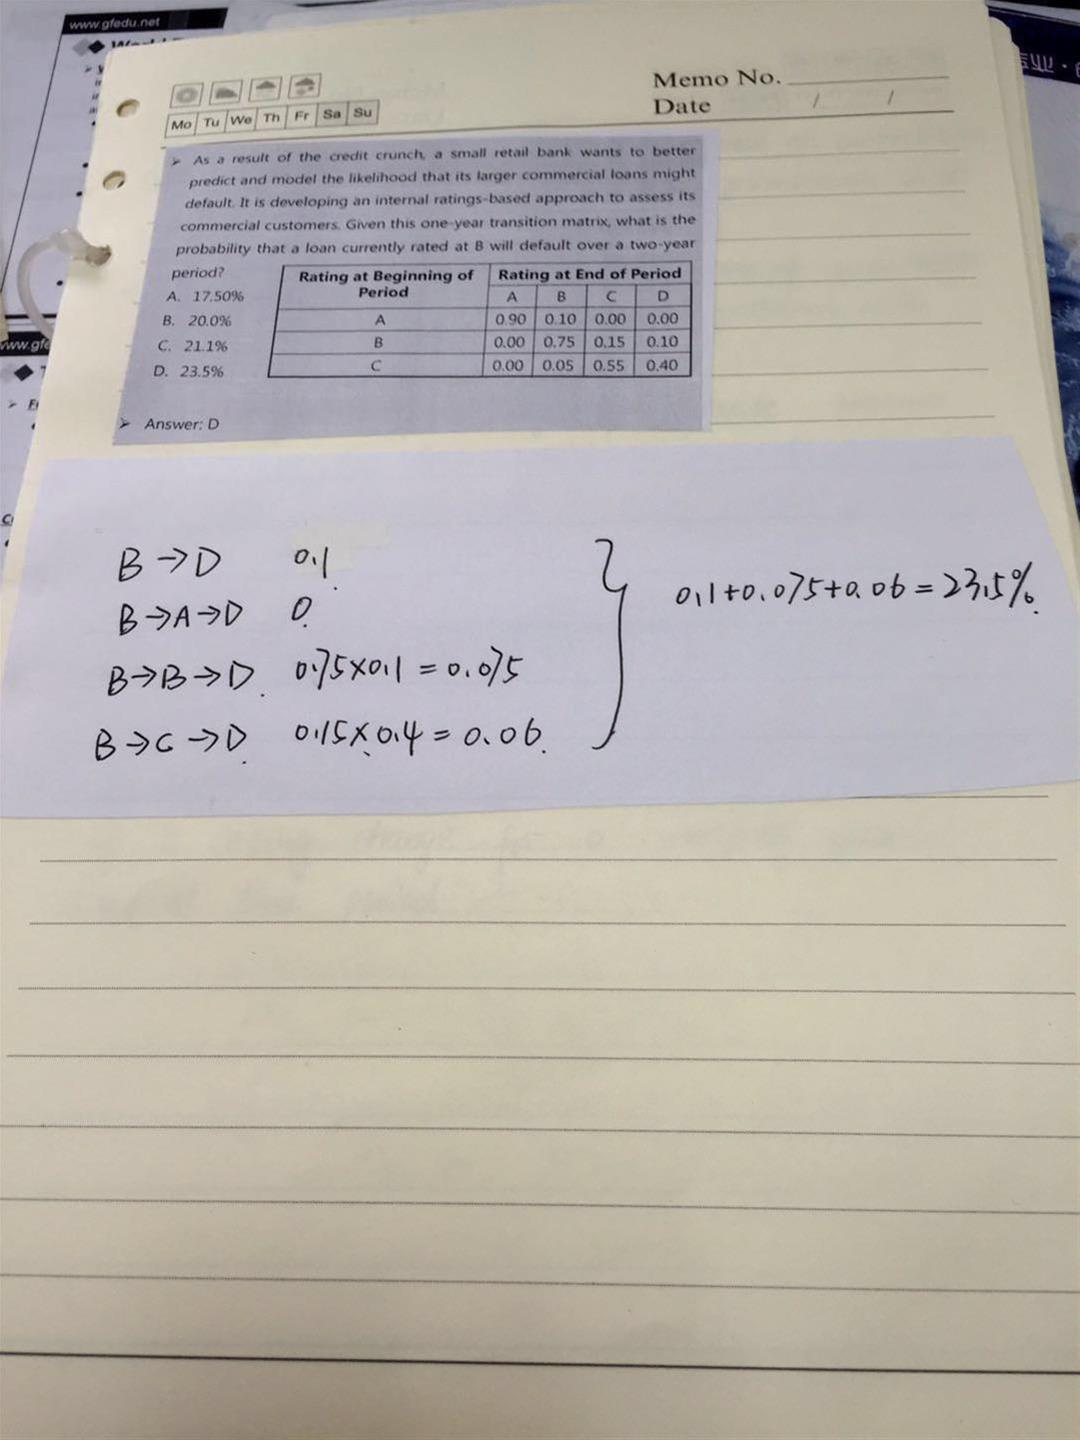 www.gfedu.net
Memo No.
Date / /
Mo Tu We Th Fr Sa Su
➢ As a result of the credit crunch, a small retail bank wants to better
predict and model the likelihood that its larger commercial loans might
default. It is developing an internal ratings-based approach to assess its
commercial customers. Given this one-year transition matrix, what is the
probability that a loan currently rated at B will default over a two-year
period?
A. 17.50%
B. 20.0%
C. 21.1%
D. 23.5%
Rating at Beginning of Period Rating at End of Period
A B C D
A 0.90 0.10 0.00 0.00
B 0.00 0.75 0.15 0.10
C 0.00 0.05 0.55 0.40
➢ Answer: D
B→D 0.1
B→A→D 0
B→B→D 0.75×0.1=0.075
B→C→D 0.15×0.4=0.06
0.1+0.075+0.06=23.5%